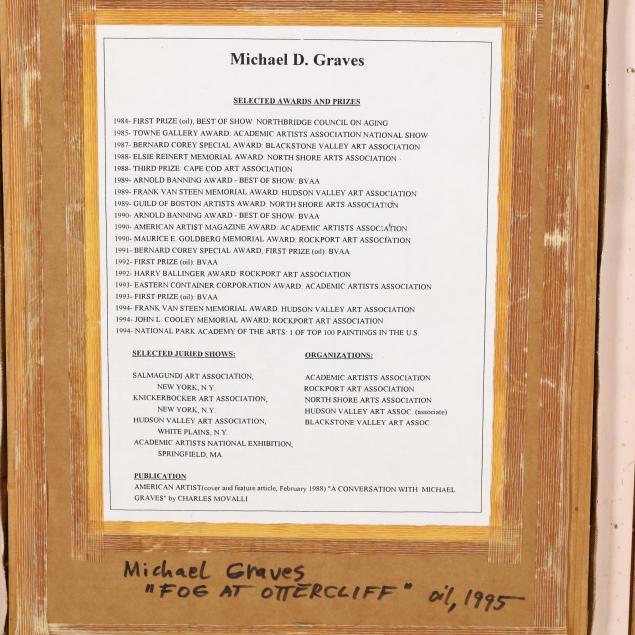 Michael D. Graves
SELECTED AWARDS AND PRIZES
1984- FIRST PRIZE (oil), BEST OF SHOW: NORTHBRIDGE COUNCIL ON AGING
1985- TOWNE GALLERY AWARD: ACADEMIC ARTISTS ASSOCIATION NATIONAL SHOW
1987- BERNARD COREY SPECIAL AWARD: BLACKSTONE VALLEY ART ASSOCIATION
1988- ELSIE REINERT MEMORIAL AWARD: NORTH SHORE ARTS ASSOCIATION
1988- THIRD PRIZE: CAPE COD ART ASSOCIATION
1989- ARNOLD BANNING AWARD - BEST OF SHOW: BVAA
1989- FRANK VAN STEEN MEMORIAL AWARD: HUDSON VALLEY ART ASSOCIATION
1989- GUILD OF BOSTON ARTISTS AWARD: NORTH SHORE ARTS ASSOCIATION
1990- ARNOLD BANNING AWARD - BEST OF SHOW: BVAA
1990- AMERICAN ARTIST MAGAZINE AWARD: ACADEMIC ARTISTS ASSOCIATION
1990- MAURICE E. GOLDBERG MEMORIAL AWARD: ROCKPORT ART ASSOCIATION
1991- BERNARD COREY SPECIAL AWARD, FIRST PRIZE (oil): BVAA
1992- FIRST PRIZE (oil): BVAA
1992- HARRY BALLINGER AWARD: ROCKPORT ART ASSOCIATION
1993- EASTERN CONTAINER CORPORATION AWARD: ACADEMIC ARTISTS ASSOCIATION
1993- FIRST PRIZE (oil): BVAA
1994- FRANK VAN STEEN MEMORIAL AWARD: HUDSON VALLEY ART ASSOCIATION
1994- JOHN L. COOLEY MEMORIAL AWARD: ROCKPORT ART ASSOCIATION
1994- NATIONAL PARK ACADEMY OF THE ARTS: 1 OF TOP 100 PAINTINGS IN THE U.S.
SELECTED JURIED SHOWS:
SALMAGUNDI ART ASSOCIATION,
NEW YORK, N.Y.
KNICKERBOCKER ART ASSOCIATION,
NEW YORK, N.Y.
HUDSON VALLEY ART ASSOCIATION,
WHITE PLAINS, N.Y.
ACADEMIC ARTISTS NATIONAL EXHIBITION,
SPRINGFIELD, MA.
ORGANIZATIONS:
ACADEMIC ARTISTS ASSOCIATION
ROCKPORT ART ASSOCIATION
NORTH SHORE ARTS ASSOCIATION
HUDSON VALLEY ART ASSOC. (associate)
BLACKSTONE VALLEY ART ASSOC.
PUBLICATION
AMERICAN ARTIST(cover and feature article, February 1988) "A CONVERSATION WITH MICHAEL
GRAVES" by CHARLES MOVALLI
Michael Graves
"FOG AT OTTERCLIFF" oil, 1995